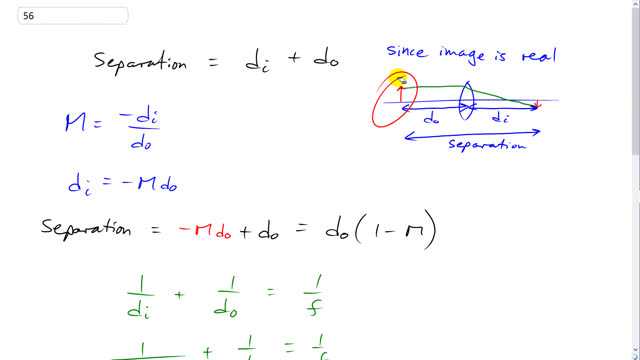 56
Separation = di + do
since image is real
do di
separation
M = -di/do
di = -M do
Separation = -M do + do = do (1 - M)
1/di + 1/do = 1/f